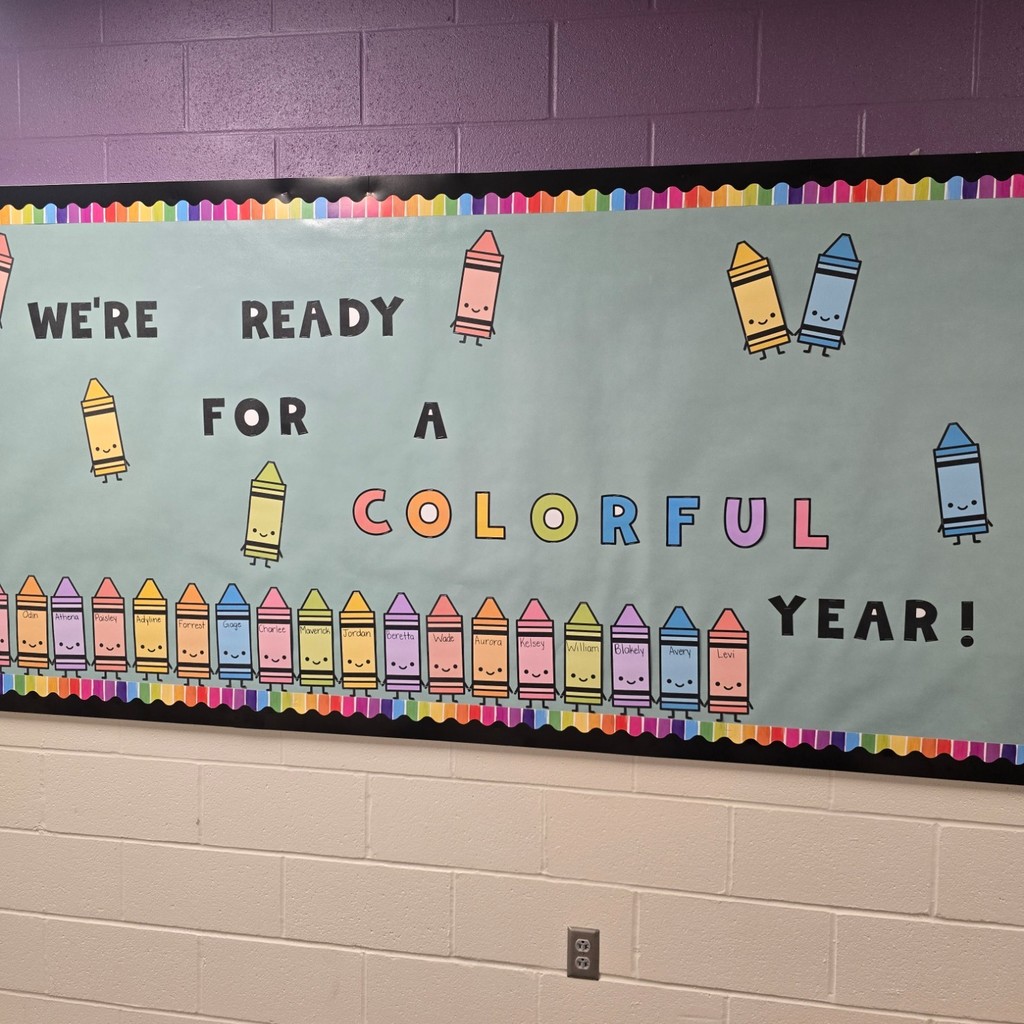 WE'RE READY
FOR A
COLORFUL
YEAR!
Odin Athena Paisley Adyline Forrest Gage Charlee Maverich Jordan Beretta Wade Aurora Kelsey William Blakely Avery Levi